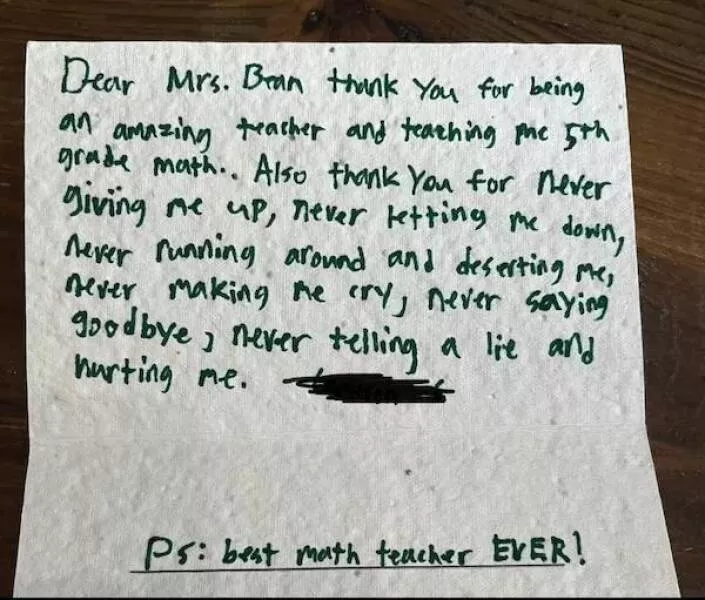 Dear Mrs. Bean thank you for being
an amazing teacher and teaching me 5th
grade math.. Also thank you for never
giving me up, never letting me down,
never running around and deserting me,
never making me cry, never saying
goodbye, never telling a lie and
hurting me.
Ps: best math teacher EVER!